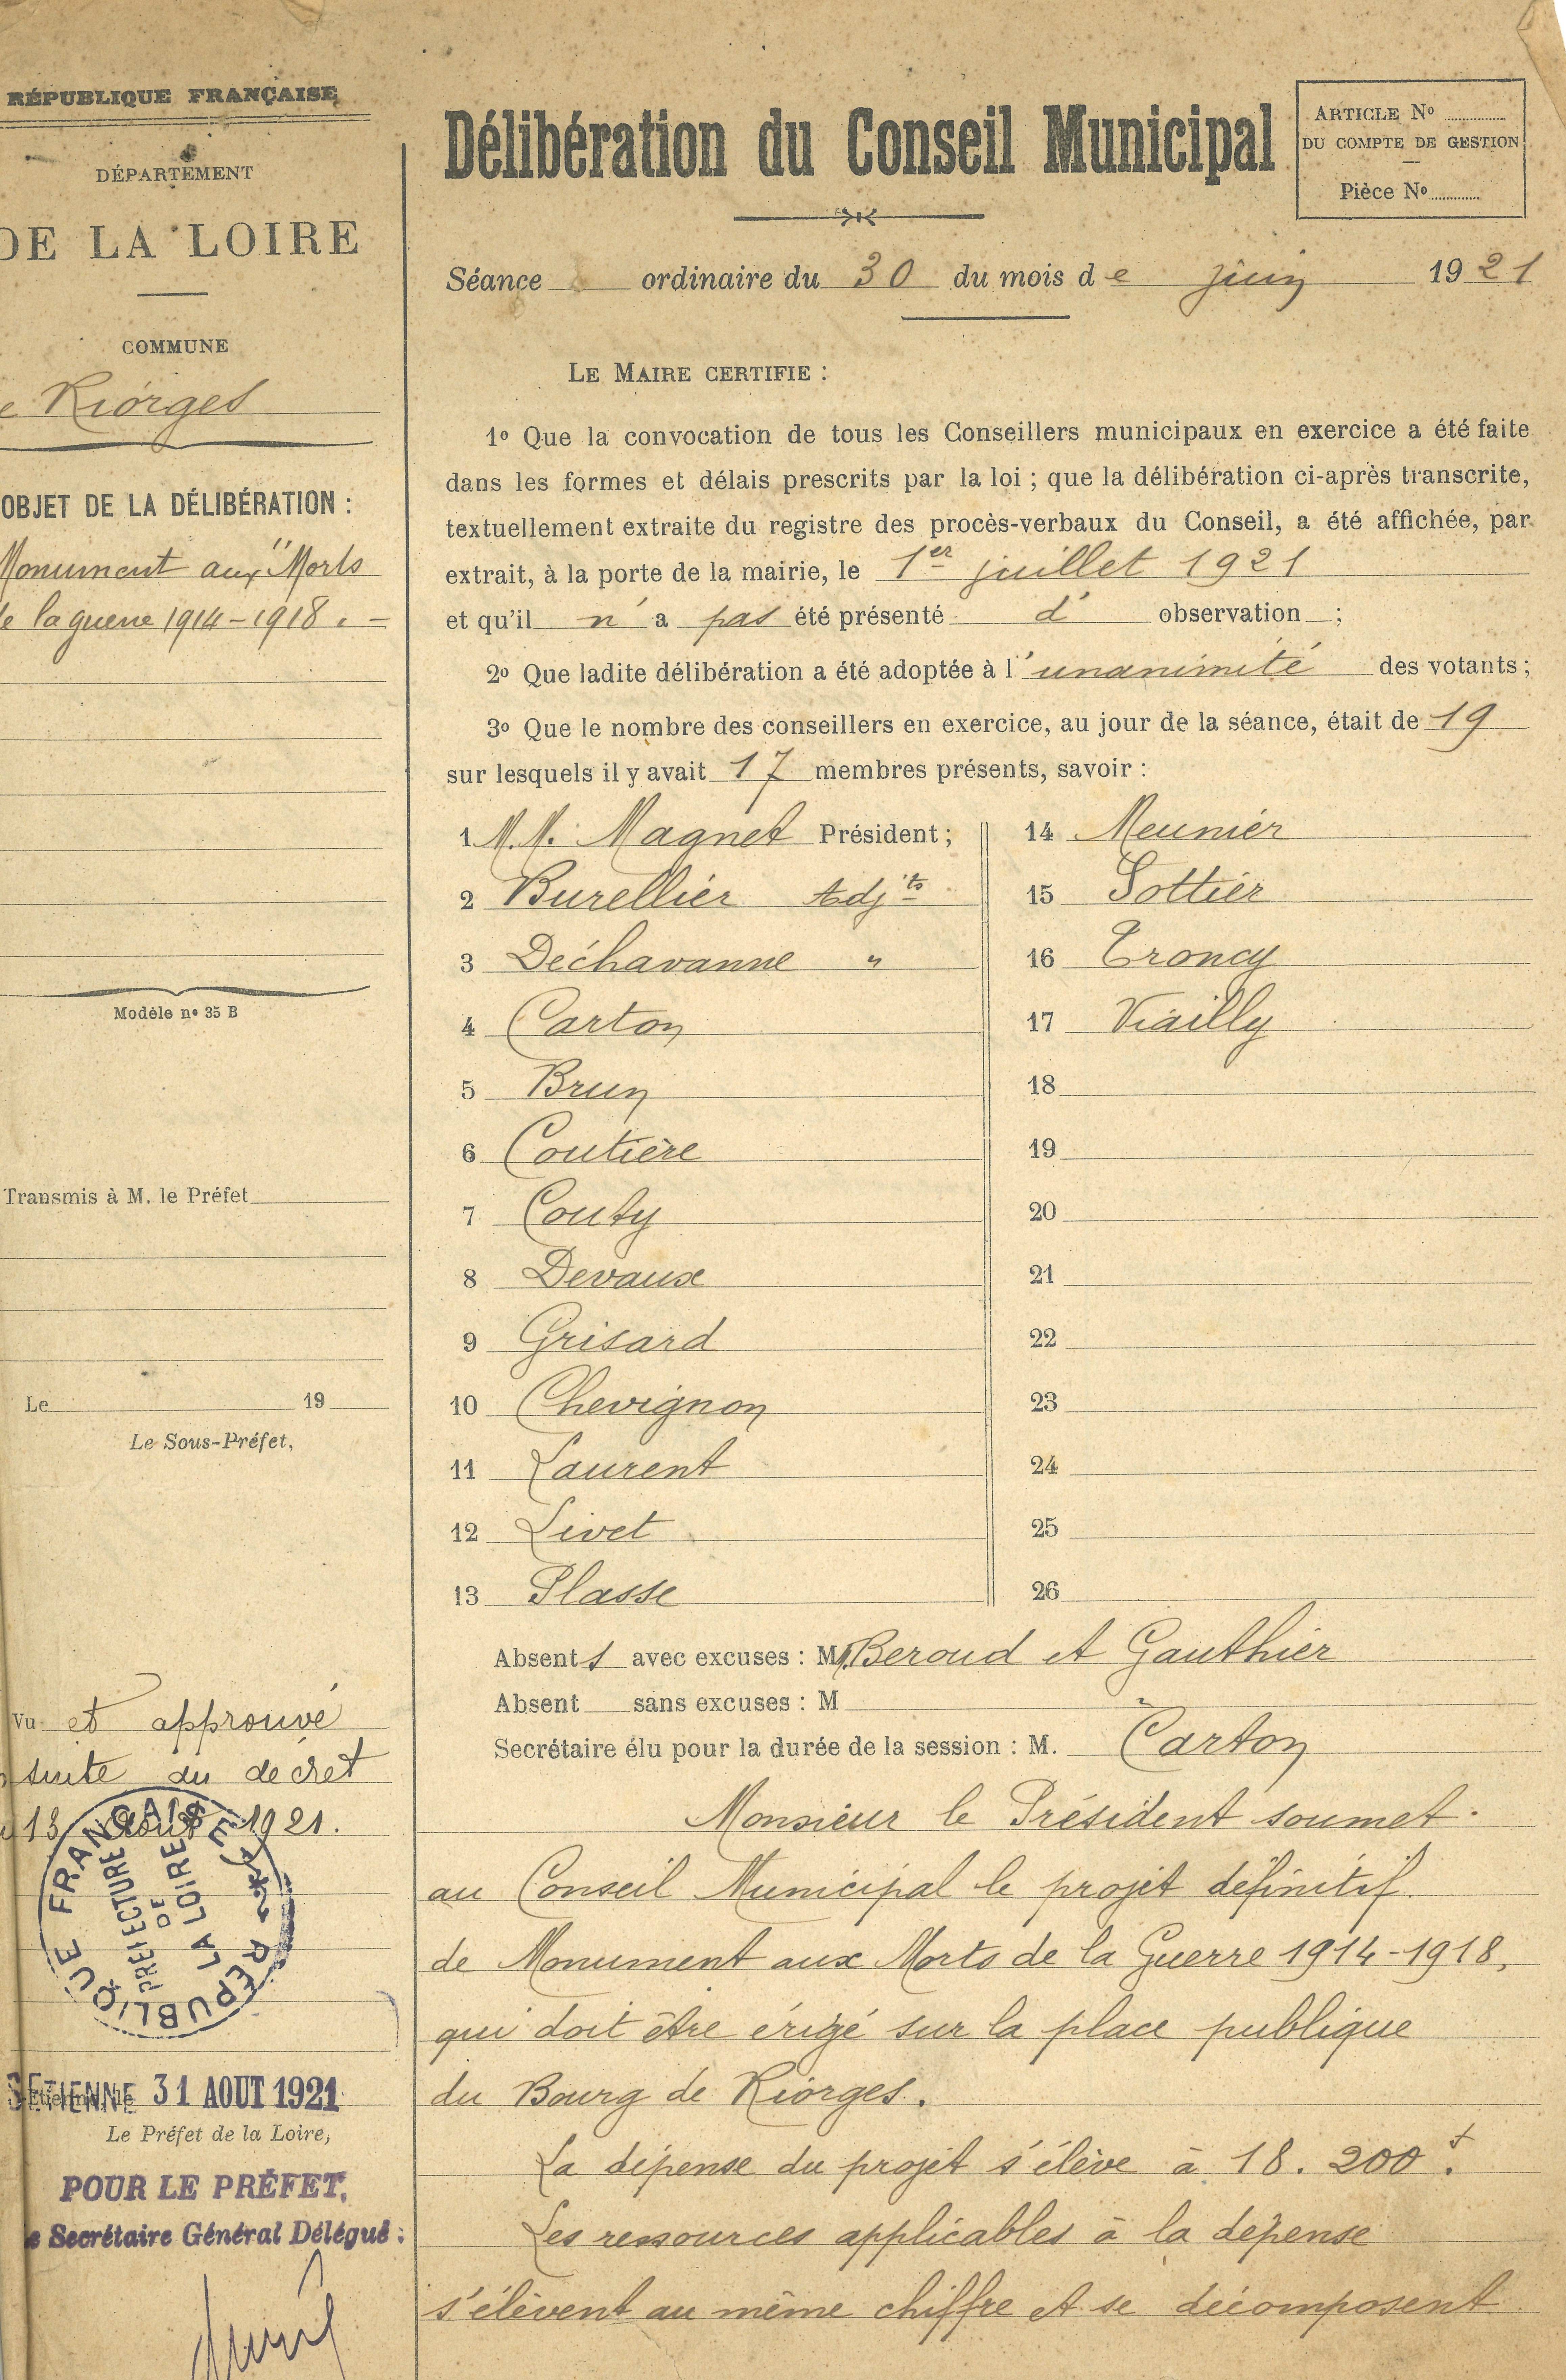 RÉPUBLIQUE FRANÇAISE
DÉPARTEMENT
DE LA LOIRE
COMMUNE
e Riorges
OBJET DE LA DÉLIBÉRATION :
Monument aux Morts
de la guerre 1914-1918. -
Modèle nº 35 B
Transmis à M. le Préfet
Le 19
Le Sous-Préfet,
Vu et approuvé
suite du décret
13 Août 1921.
RÉPUBLIQUE FRANÇAISE
PRÉFECTURE
DE
LA LOIRE
ETIENNE 31 AOUT 1921
Le Préfet de la Loire,
POUR LE PRÉFET,
e Secrétaire Général Délégué :
Délibération du Conseil Municipal
ARTICLE Nº
DU COMPTE DE GESTION
Pièce Nº
Séance ordinaire du 30 du mois de Juin 1921
LE MAIRE CERTIFIE :
1º Que la convocation de tous les Conseillers municipaux en exercice a été faite
dans les formes et délais prescrits par la loi ; que la délibération ci-après transcrite,
textuellement extraite du registre des procès-verbaux du Conseil, a été affichée, par
extrait, à la porte de la mairie, le 1er juillet 1921
et qu'il n'a pas été présenté d' observation ;
2º Que ladite délibération a été adoptée à l'unanimité des votants ;
3º Que le nombre des conseillers en exercice, au jour de la séance, était de 19
sur lesquels il y avait 17 membres présents, savoir :
1 M.M. Magnet Président ;
2 Burellier Adjts
3 Dechavanne "
4 Carton
5 Brun
6 Coutière
7 Couty
8 Devaux
9 Grisard
10 Chevignon
11 Laurent
12 Livet
13 Plasse
14 Meunier
15 Pottier
16 Troncy
17 Viailly
18
19
20
21
22
23
24
25
26
Absent s avec excuses : MM. Beroud et Gauthier
Absent sans excuses : M
Secrétaire élu pour la durée de la session : M. Carton
Monsieur le Président soumet
au Conseil Municipal le projet définitif
de Monument aux Morts de la Guerre 1914-1918,
qui doit être érigé sur la place publique
du Bourg de Riorges.
La dépense du projet s'élève à 18.200 f.
Les ressources applicables à la dépense
s'élèvent au même chiffre et se décomposent